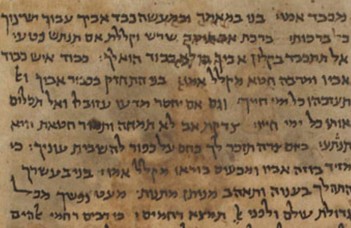 מכבד אמו: בני במאמר ובמעשה כבד אביך עבור ישיגוך
כל ברכות: ברכת אב תיסד שרש וקללת אם תנתש נטע:
אל תתכבד בקלון אביך כי לא כבוד הוא לך: כבוד איש כבוד
אביו ומרבה חטא מקלל אמו: בני התחזק בכבוד אביך ואל
תעזבהו כל ימי חייך: וגם אם יחסר מדעו עזוב לו ואל תכלים
אותו כל ימי חייו: צדקת אב לא תמחה ותמור חטאת היא
תנתע: ביום צרה תזכר לך כחם על כפור להשבית עוניך: כי
מזיד בוזה אביו ומכעיס בוראו מקלל אמו: בני בעשרך
התהלך בענוה ותאהב מנותן מתנות: מעט נפשך מכל
גדולת עולם ולפני אל תמצא רחמים: כי רבים רחמי אלהים